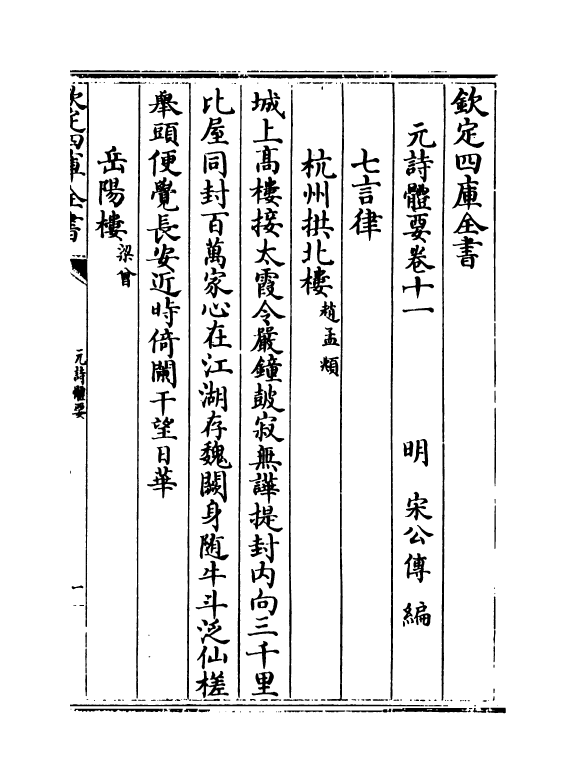 欽定四庫全書
元詩體要卷十一
明 宋公傳 編
七言律
杭州拱北樓 趙孟頫
城上髙樓接太霞令嚴鐘鼓寂無譁提封内向三千里
比屋同封百萬家心在江湖存魏闕身随牛斗泛仙槎
舉頭便覺長安近時倚闌干望日華
岳陽樓 梁曾
欽定四庫全書
元詩體要
一